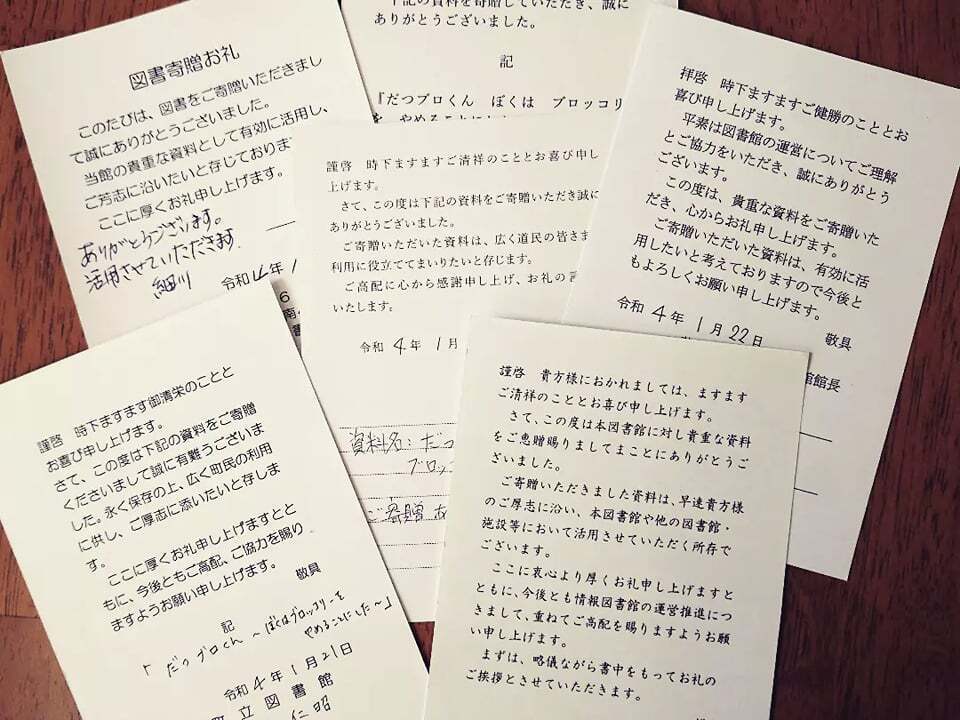 図書寄贈お礼
このたびは、図書をご寄贈いただきまし
て誠にありがとうございました。
当館の貴重な資料として有効に活用し、
ご芳志に沿いたいと存じており
ここに厚くお礼申し上げます。
ありがとうございます。
活用させていただきます
細川
令和4年1
下記の資料を寄贈していただき、誠に
ありがとうございました。
記
『だつブロくん ぼくは ブロッコリ
を やめることにした
謹啓 時下ますますご清祥のこととお喜び申し
上げます。
さて、この度は下記の資料をご寄贈いただき誠に
ありがとうございました。
ご寄贈いただいた資料は、広く道民の皆さま
利用に役立ててまいりたいと存じます。
ご高配に心から感謝申し上げ、お礼の言
いたします。
令和 4 年 1 月
資料名:だつ
ブロッコ
ご寄贈
拝啓 時下ますますご健勝のこととお
喜び申し上げます。
平素は図書館の運営についてご理解
とご協力をいただき、誠にありがとう
ございます。
この度は、貴重な資料をご寄贈いた
だき、心からお礼申し上げます。
ご寄贈いただいた資料は、有効に活
用したいと考えておりますので今後と
もよろしくお願い申し上げます。
敬具
令和 4 年 1 月 22 日
館館長
謹啓 時下ますます御清栄のことと
お喜び申し上げます。
さて、この度は下記の資料をご寄贈
くださいまして誠に有難うございま
した。永く保存の上、広く町民の利用
に供し、ご厚志に添いたいと存しま
す。
ここに厚くお礼申し上げますとと
もに、今後ともご高配、ご協力を賜り
ますようお願い申し上げます。
敬具
記
「だつブロくん ~ぼくはブロッコリーを
やめることにした~」
令和4年1月21日
立図書館
仁昭
謹啓 貴方様におかれましては、ますます
ご清祥のこととお喜び申し上げます。
さて、この度は本図書館に対し貴重な資料
をご恵贈賜りましてまことにありがとうご
ざいました。
ご寄贈いただきました資料は、早速貴方様
のご厚志に沿い、本図書館や他の図書館・
施設等において活用させていただく所存で
ございます。
ここに衷心より厚くお礼申し上げますと
ともに、今後とも情報図書館の運営推進につ
きまして、重ねてご高配を賜りますようお願
い申し上げます。
まずは、略儀ながら書中をもってお礼の
ご挨拶とさせていただきます。